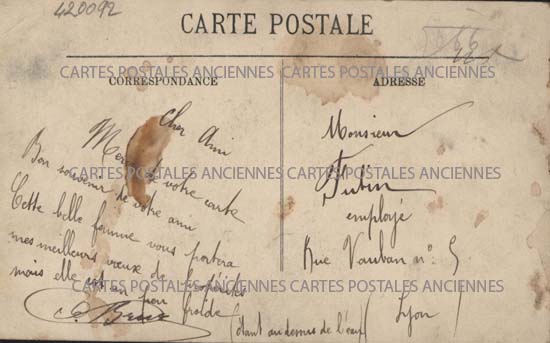 420092
CARTE POSTALE
CARTES POSTALES ANCIENNES CARTES POSTALES ANCIENNES
CORRESPONDANCE
Cher Ami
Merci de votre carte
Bon souvenir de votre ami
Cette belle femme vous portera
mes meilleurs vœux de prospérités
mais elle est un peu froide
(étant au dessus de l'eau)
CARTES POSTALES ANCIENNES CARTES POSTALES ANCIENNES
CARTES POSTALES ANCIENNES CARTES POSTALES ANCIENNES
ADRESSE
Monsieur
employé
Rue Vauban n° 5
Lyon